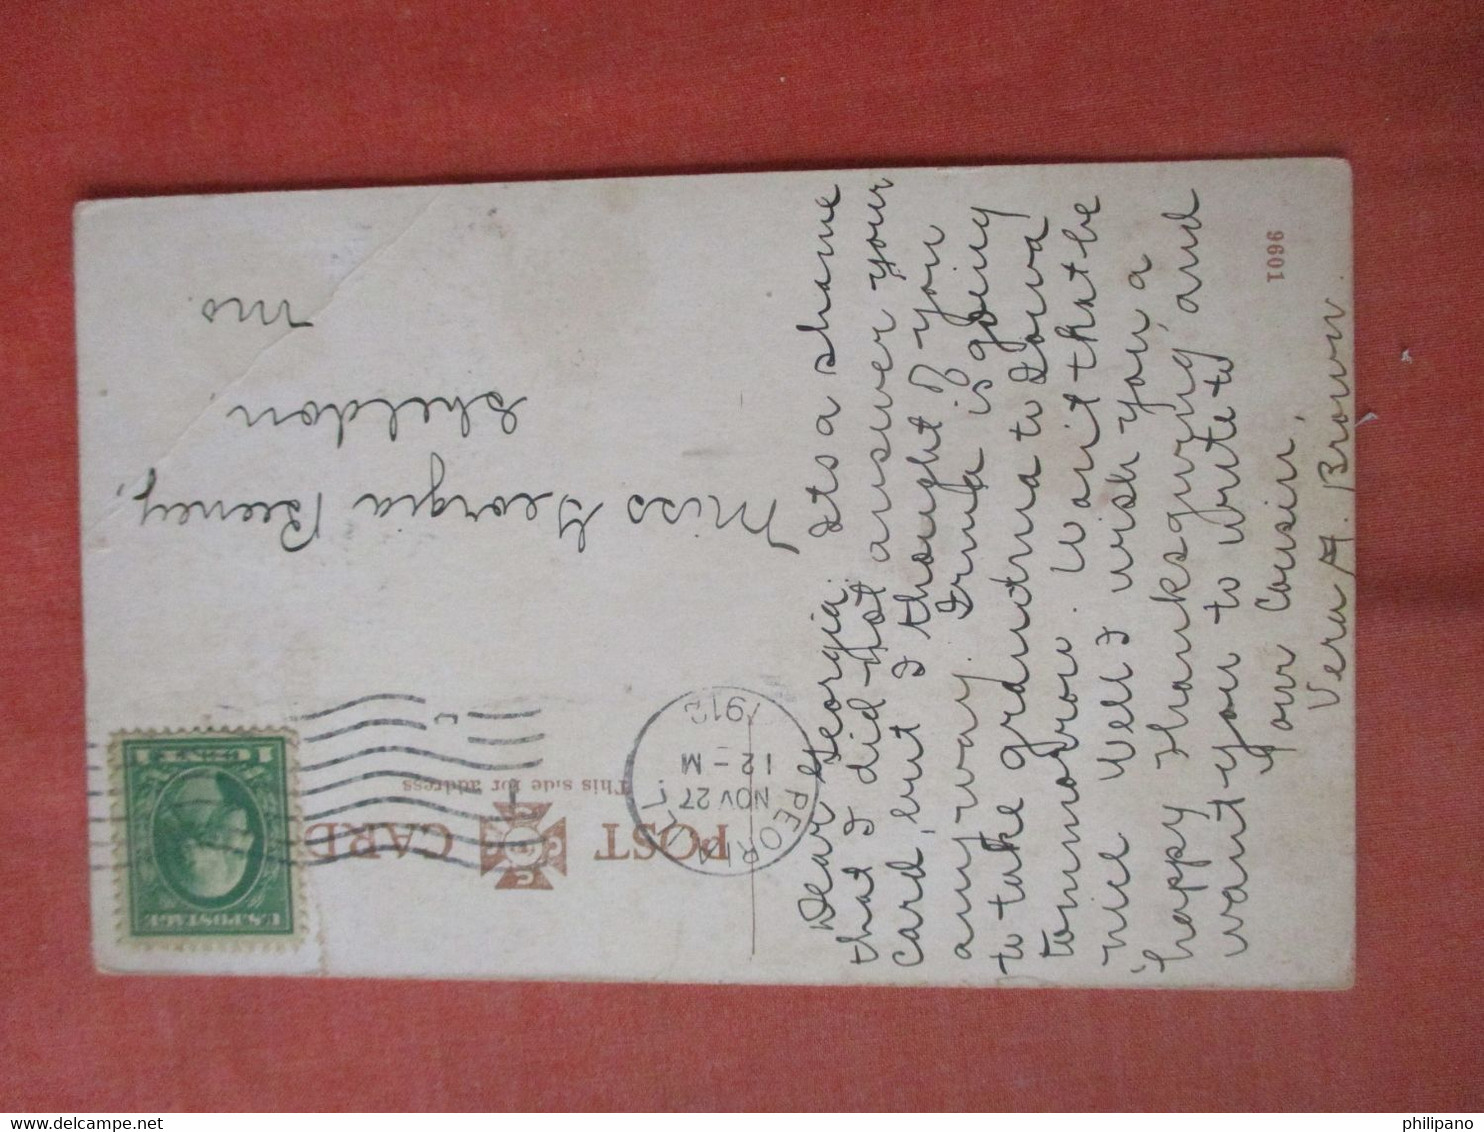 POST CARD
This side for address
U.S. POSTAGE
1 CENT 1
PEORIA
ILL.
NOV 27
12 - M
1912
Miss Georgia Beeney,
Sheldon
Mo.
Dear Georgia. Its a shame
that I did not answer your
card, but I thought of you
anyway. Irma is going
to take grandma to Iowa
tommorrow. Wont that be
nice Well I wish you, a
happy Thanksgiving, and
want you to write to
your Cousin,
Vera A. Brown.
9601
philipano